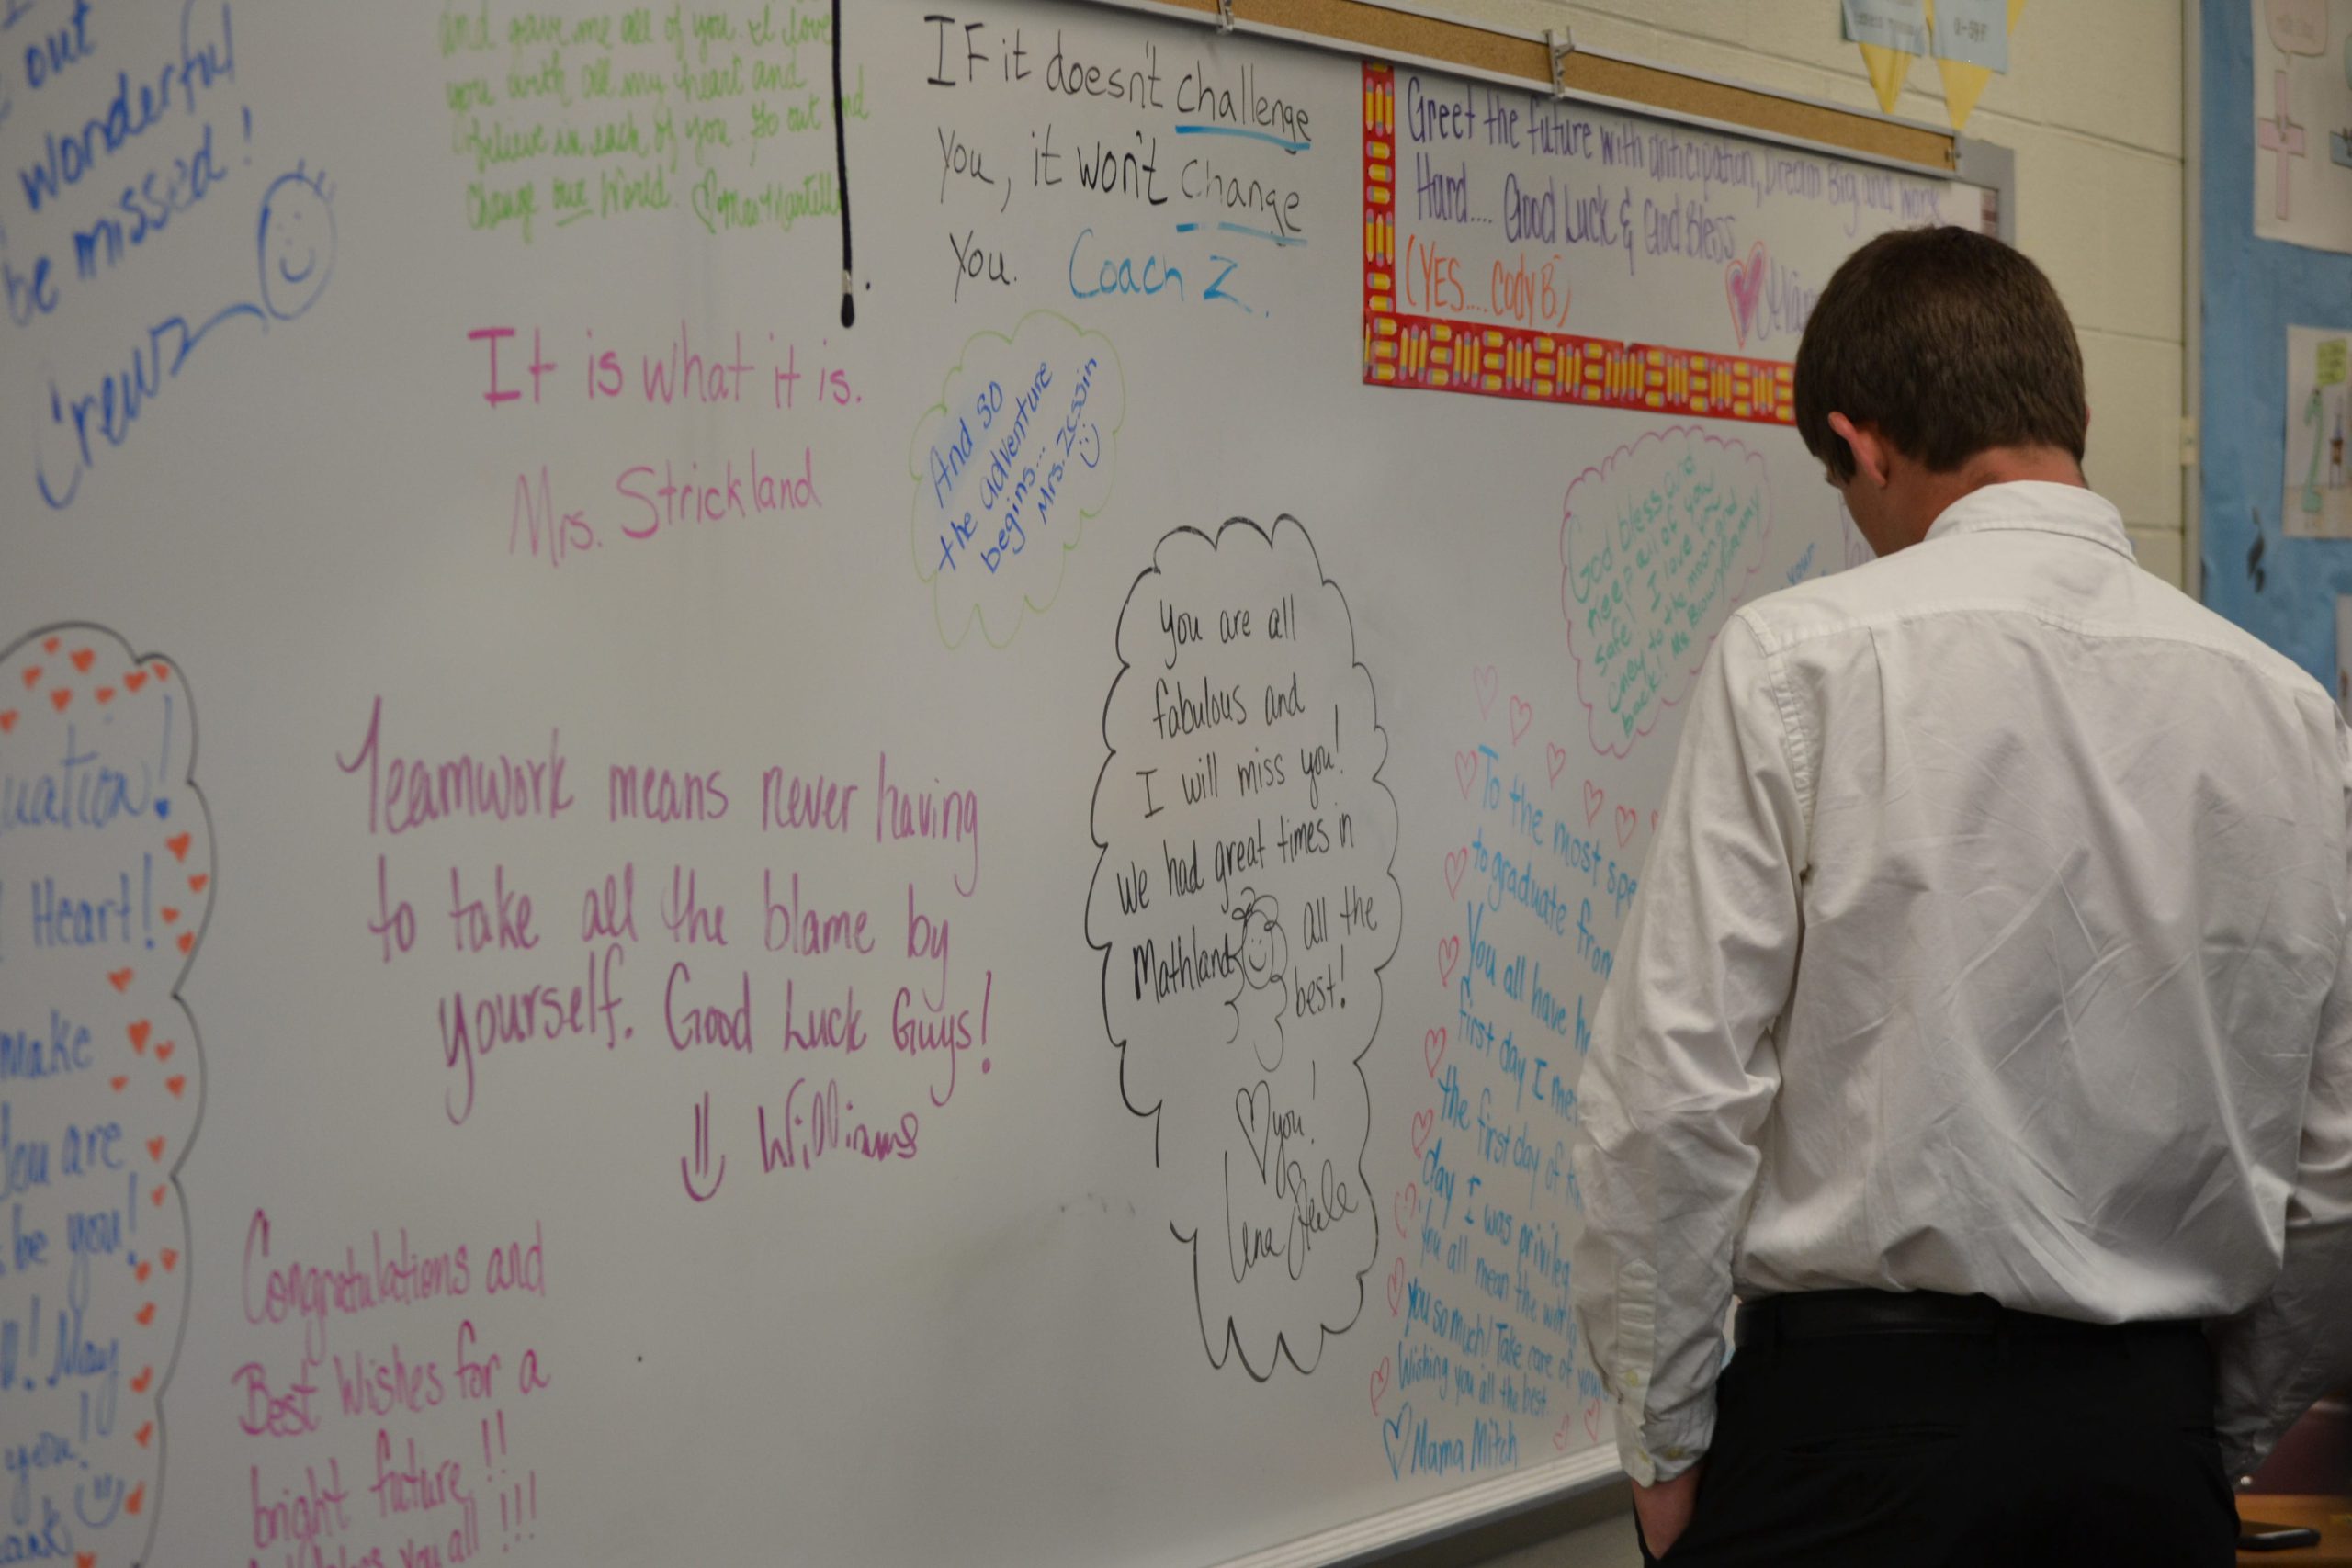 out
wonderful
be missed!
Crewz
and gave me all of you. I love
you with all my heart and
believe in each of you. Go out and
change our World.
IF it doesn't challenge
You, it won't change
You. Coach Z.
Greet the future with anticipation, Dream Big and work
Hard.... Good Luck & God Bless
(YES.... Cody B.)
It is what it is.
Mrs. Strickland
And so
the adventure
begins...
Mrs. Zessin
God bless and
keep all of you
safe! I love you
to the moon and
back! Ms.
You are all
fabulous and
I will miss you!
We had great times in
Mathland all the
best!
you!
Lena Steele
To the most spe
to graduate from
You all have
first day I me
the first day of
day I was privileg
You all mean the world
you so much! Take care of
Wishing you all the best
Mama Mitch
Teamwork means never having
to take all the blame by
yourself. Good Luck Guys!
Williams
Congratulations and
Best Wishes for a
bright future!!
you all!!!
uation!
Heart!
make
You are
be you!
May
you!